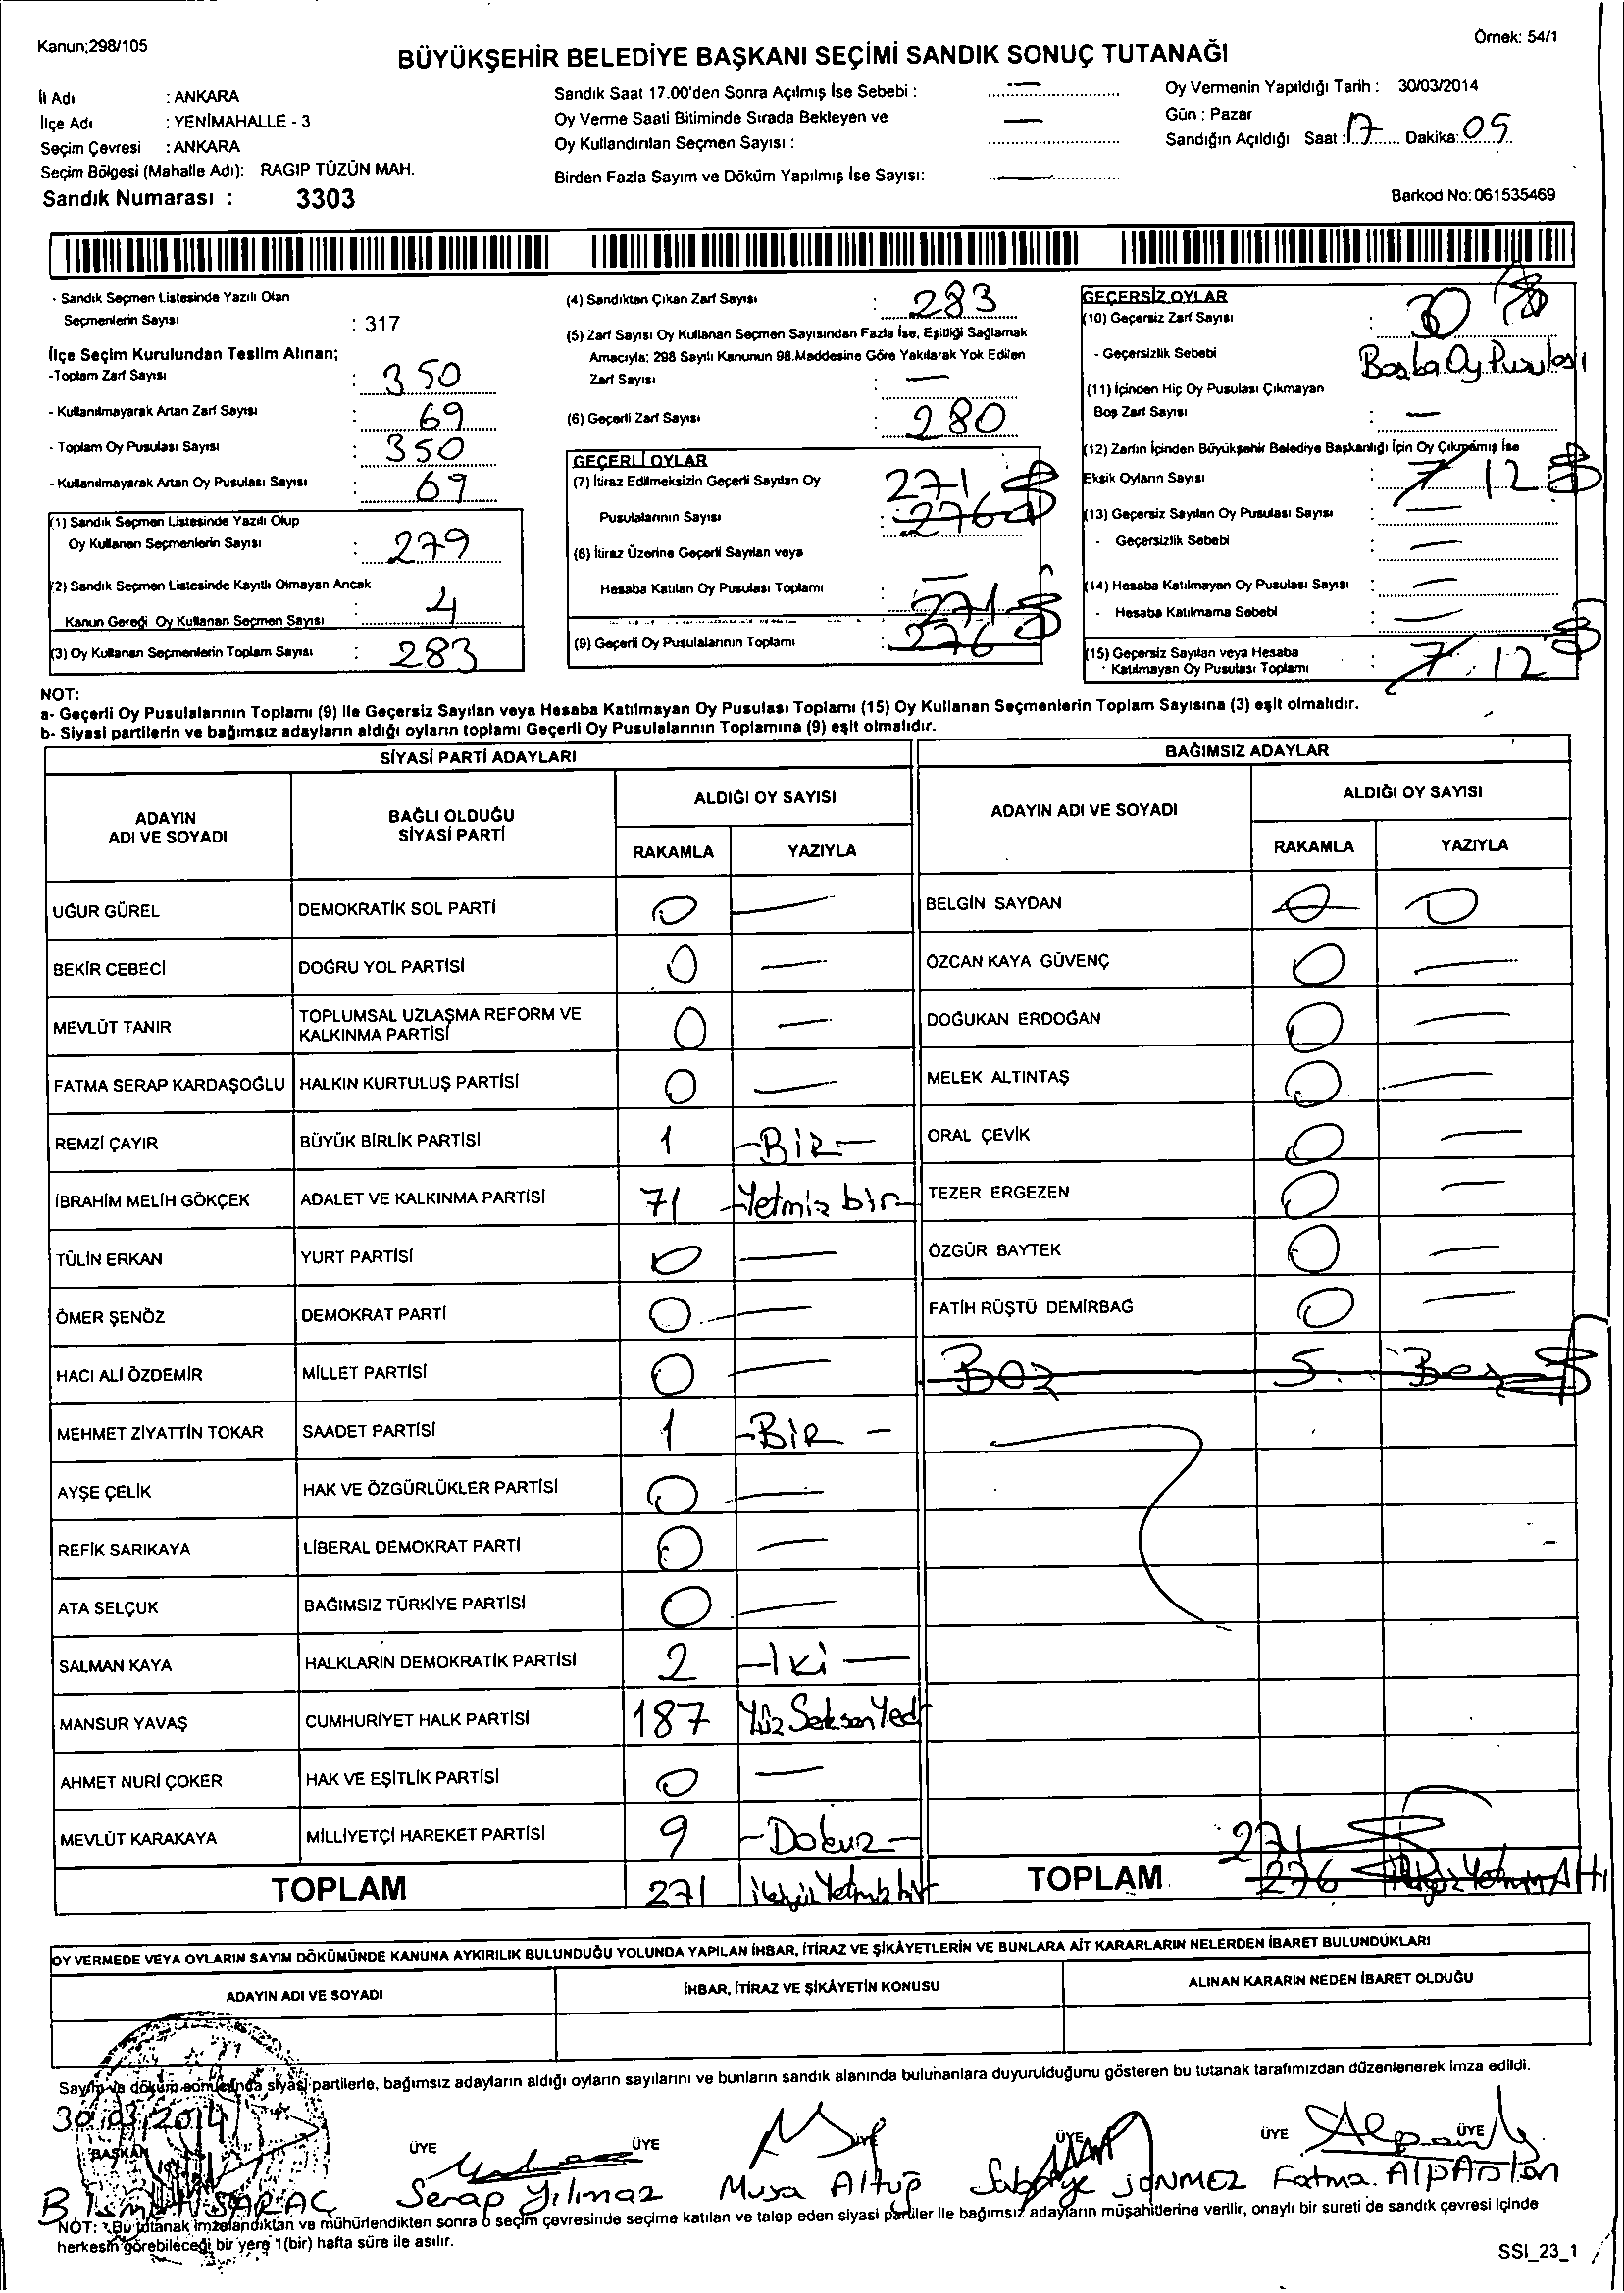 Kanun;298/105
Örnek: 54/1
BÜYÜKŞEHİR BELEDİYE BAŞKANI SEÇİMİ SANDIK SONUÇ TUTANAĞI
İl Adı : ANKARA
İlçe Adı : YENİMAHALLE - 3
Seçim Çevresi : ANKARA
Seçim Bölgesi (Mahalle Adı): RAGIP TÜZÜN MAH.
Sandık Numarası : 3303
Sandık Saat 17.00'den Sonra Açılmış İse Sebebi : —
Oy Verme Saati Bitiminde Sırada Bekleyen ve —
Oy Kullandırılan Seçmen Sayısı :
Birden Fazla Sayım ve Döküm Yapılmış İse Sayısı: —
Oy Vermenin Yapıldığı Tarih : 30/03/2014
Gün : Pazar
Sandığın Açıldığı Saat : 17 Dakika: 05
Barkod No: 061535469
- Sandık Seçmen Listesinde Yazılı Olan
Seçmenlerin Sayısı : 317
İlçe Seçim Kurulundan Teslim Alınan;
-Toplam Zarf Sayısı : 350
- Kullanılmayarak Artan Zarf Sayısı : 69
- Toplam Oy Pusulası Sayısı : 350
- Kullanılmayarak Artan Oy Pusulası Sayısı : 69
(1) Sandık Seçmen Listesinde Yazılı Olup
Oy Kullanan Seçmenlerin Sayısı : 279
(2) Sandık Seçmen Listesinde Kayıtlı Olmayan Ancak
Kanun Gereği Oy Kullanan Seçmen Sayısı : 4
(3) Oy Kullanan Seçmenlerin Toplam Sayısı : 283
(4) Sandıktan Çıkan Zarf Sayısı : 283
(5) Zarf Sayısı Oy Kullanan Seçmen Sayısından Fazla İse, Eşitliği Sağlamak
Amacıyla; 298 Sayılı Kanunun 98.Maddesine Göre Yakılarak Yok Edilen
Zarf Sayısı : —
(6) Geçerli Zarf Sayısı : 280
GEÇERLİ OYLAR
(7) İtiraz Edilmeksizin Geçerli Sayılan Oy 271
Pusulalarının Sayısı : 276
(8) İtiraz Üzerine Geçerli Sayılan veya
Hesaba Katılan Oy Pusulası Toplamı : —
271
(9) Geçerli Oy Pusulalarının Toplamı : 276
GEÇERSİZ OYLAR
(10) Geçersiz Zarf Sayısı : 30
- Geçersizlik Sebebi : Başka Oy Pusulası
(11) İçinden Hiç Oy Pusulası Çıkmayan
Boş Zarf Sayısı : —
(12) Zarfın İçinden Büyükşehir Belediye Başkanlığı İçin Oy Çıkmamış İse
Eksik Oyların Sayısı : 7 12
(13) Geçersiz Sayılan Oy Pusulası Sayısı : —
- Geçersizlik Sebebi : —
(14) Hesaba Katılmayan Oy Pusulası Sayısı : —
- Hesaba Katılmama Sebebi : —
(15) Geçersiz Sayılan veya Hesaba
Katılmayan Oy Pusulası Toplamı : 7 12
NOT:
a- Geçerli Oy Pusulalarının Toplamı (9) ile Geçersiz Sayılan veya Hesaba Katılmayan Oy Pusulası Toplamı (15) Oy Kullanan Seçmenlerin Toplam Sayısına (3) eşit olmalıdır.
b- Siyasi partilerin ve bağımsız adayların aldığı oyların toplamı Geçerli Oy Pusulalarının Toplamına (9) eşit olmalıdır.
SİYASİ PARTİ ADAYLARI
ADAYIN ADI VE SOYADI BAĞLI OLDUĞU SİYASİ PARTİ ALDIĞI OY SAYISI
RAKAMLA YAZIYLA
UĞUR GÜREL DEMOKRATİK SOL PARTİ 0 —
BEKİR CEBECİ DOĞRU YOL PARTİSİ 0 —
MEVLÜT TANIR TOPLUMSAL UZLAŞMA REFORM VE KALKINMA PARTİSİ 0 —
FATMA SERAP KARDAŞOĞLU HALKIN KURTULUŞ PARTİSİ 0 —
REMZİ ÇAYIR BÜYÜK BİRLİK PARTİSİ 1 -BİR-
İBRAHİM MELİH GÖKÇEK ADALET VE KALKINMA PARTİSİ 71 -Yetmiş bir-
TÜLİN ERKAN YURT PARTİSİ 0 —
ÖMER ŞENÖZ DEMOKRAT PARTİ 0 —
HACI ALİ ÖZDEMİR MİLLET PARTİSİ 0 —
MEHMET ZİYATTİN TOKAR SAADET PARTİSİ 1 -BİR -
AYŞE ÇELİK HAK VE ÖZGÜRLÜKLER PARTİSİ 0 —
REFİK SARIKAYA LİBERAL DEMOKRAT PARTİ 0 —
ATA SELÇUK BAĞIMSIZ TÜRKİYE PARTİSİ 0 —
SALMAN KAYA HALKLARIN DEMOKRATİK PARTİSİ 2 -İki-
MANSUR YAVAŞ CUMHURİYET HALK PARTİSİ 187 Yüz Seksen Yedi
AHMET NURİ ÇOKER HAK VE EŞİTLİK PARTİSİ 0 —
MEVLÜT KARAKAYA MİLLİYETÇİ HAREKET PARTİSİ 9 -Dokuz-
TOPLAM 271 ikiyüz Yetmiş bir
BAĞIMSIZ ADAYLAR
ADAYIN ADI VE SOYADI ALDIĞI OY SAYISI
RAKAMLA YAZIYLA
BELGİN SAYDAN 0 0
ÖZCAN KAYA GÜVENÇ 0 —
DOĞUKAN ERDOĞAN 0 —
MELEK ALTINTAŞ 0 —
ORAL ÇEVİK 0 —
TEZER ERGEZEN 0 —
ÖZGÜR BAYTEK 0 —
FATİH RÜŞTÜ DEMİRBAĞ 0 —
Boş 5 Beş
271
TOPLAM 276 ikiyüz Yetmiş Altı
OY VERMEDE VEYA OYLARIN SAYIM DÖKÜMÜNDE KANUNA AYKIRILIK BULUNDUĞU YOLUNDA YAPILAN İHBAR, İTİRAZ VE ŞİKÂYETLERİN VE BUNLARA AİT KARARLARIN NELERDEN İBARET BULUNDUKLARI
ADAYIN ADI VE SOYADI İHBAR, İTİRAZ VE ŞİKÂYETİN KONUSU ALINAN KARARIN NEDEN İBARET OLDUĞU
Sayım ve döküm sonucunda siyasi partilerle, bağımsız adayların aldığı oyların sayılarını ve bunların sandık alanında bulunanlara duyurulduğunu gösteren bu tutanak tarafımızdan düzenlenerek imza edildi.
30.03.2014
BAŞKAN ÜYE ÜYE ÜYE ÜYE ÜYE ÜYE
SARAÇ Serap Yılmaz Musa Altuğ SÖNMEZ Fatma. AlpArslan
NOT: Bu tutanak imzalandıktan ve mühürlendikten sonra o seçim çevresinde seçime katılan ve talep eden siyasi partiler ile bağımsız adayların müşahitlerine verilir, onaylı bir sureti de sandık çevresi içinde
herkesin görebileceği bir yere 1(bir) hafta süre ile asılır.
SSI_23_1